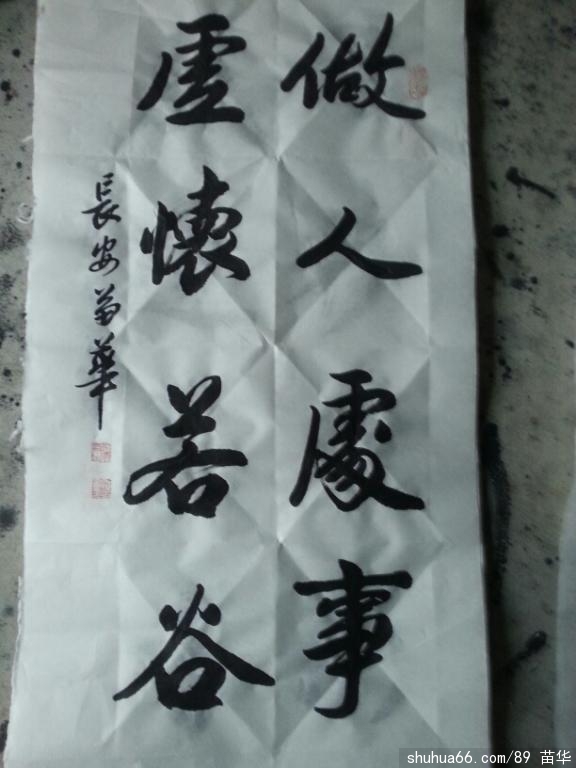 做人處事
虛懷若谷
長安苗華
shuhua66.com/89 苗华